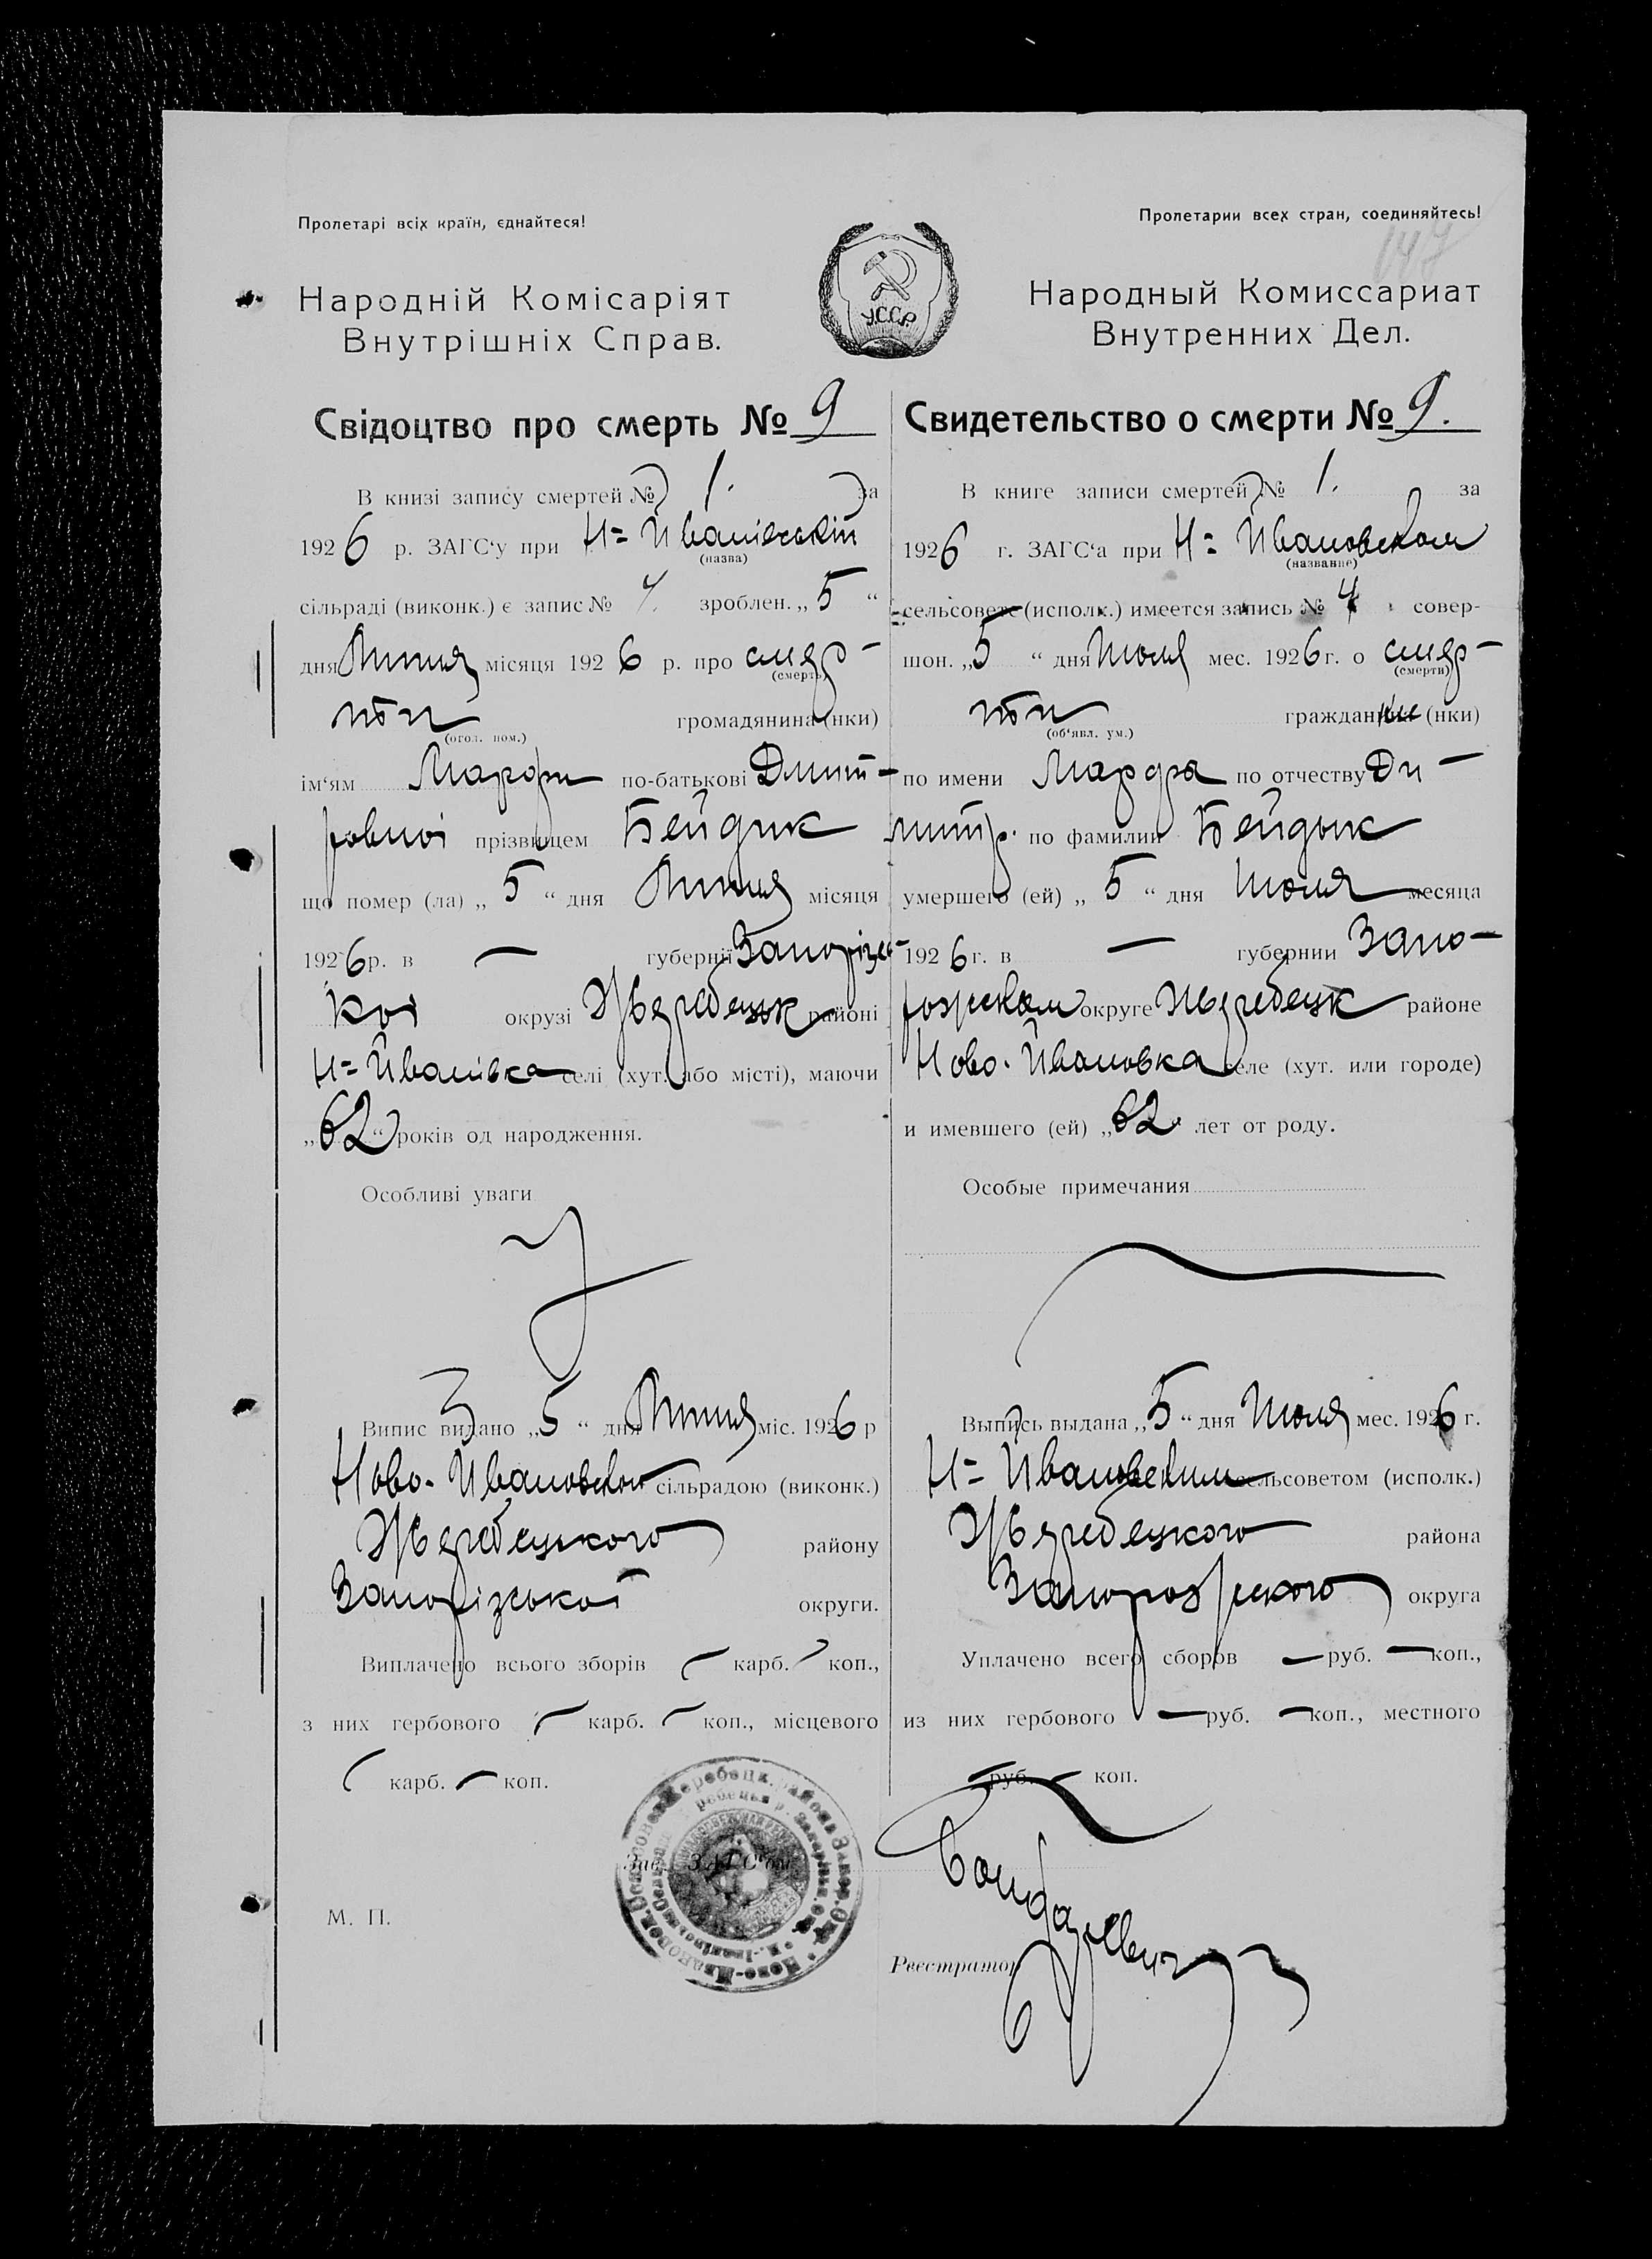 Пролетарі всіх країн, єднайтеся!
Народній Комісаріят
Внутрішніх Справ.
Свідоцтво про смерть № 9
В книзі запису смертей № 1. за
1926 р. ЗАГС‘у при Н= Иванівській
(назва)
сільраді (виконк.) є запис № 4. зроблен. „5“
дня Липня місяця 1926 р. про смер-
(смерть)
ти громадянина (нки)
(огол. пом.)
ім‘ям Марфи по-батькові Дмит-
ровної прізвищем Бейдик
що помер (ла) „5“ дня Липня місяця
1926 р. в — губернії Запорізь-
кої окрузі Жеребецьк районі
Н= Иванівка селі (хут. або місті), маючи
„62“ років од народження.
Особливі уваги
Випис видано „5“ дня Липня міс. 1926 р
Ново-Ивановскою сільрадою (виконк.)
Жеребецького району
Запорізької округи.
Виплачено всього зборів — карб. — коп.,
з них гербового — карб. — коп., місцевого
— карб. — коп.
М. П.
Пролетарии всех стран, соединяйтесь!
147
У.С.С.Р.
Народный Комиссариат
Внутренних Дел.
Свидетельство о смерти № 9.
В книге записи смертей № 1. за
1926 г. ЗАГС‘а при Н= Ивановском
(название)
сельсовете (исполк.) имеется запись № 4 совер-
шон. „5“ дня Июля мес. 1926 г. о смер-
(смерти)
ти граждан (нки)
(об‘явл. ум.)
по имени Марфа по отчеству Ди-
митр. по фамилии Бейдык
умершего (ей) „5“ дня Июля месяца
1926 г. в — губернии Запо-
рожском округе Жеребецк районе
Ново-Ивановка селе (хут. или городе)
и имевшего (ей) „62“ лет от роду.
Особые примечания
Выпись выдана „5“ дня Июля мес. 1926 г.
Н= Ивановским сельсоветом (исполк.)
Жеребецкого района
Запорожского округа
Уплачено всего сборов — руб. — коп.,
из них гербового — руб. — коп., местного
— руб. — коп.
Зав. ЗАГС‘ом
Реестратор